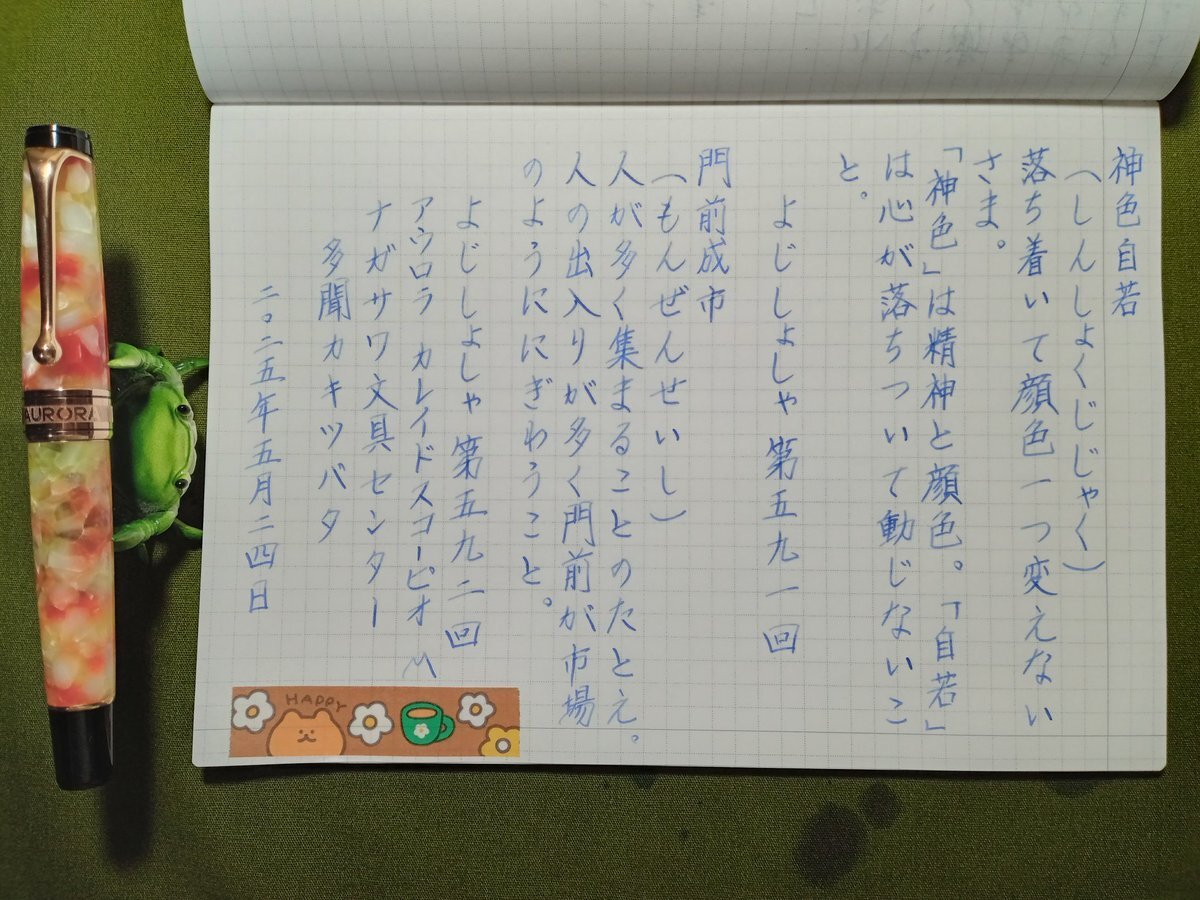 神色自若
(しんしょくじじゃく)
落ち着いて顔色一つ変えない
さま。
「神色」は精神と顔色。「自若」
は心が落ちついて動じないこ
と。
よじしょしゃ 第五九一回
門前成市
(もんぜんせいし)
人が多く集まることのたとえ。
人の出入りが多く門前が市場
のようににぎわうこと。
よじしょしゃ 第五九二回
アウロラ カレイドスコーピオ M
ナガサワ文具センター
多聞カキツバタ
二〇二五年五月二四日
HAPPY
AURORA